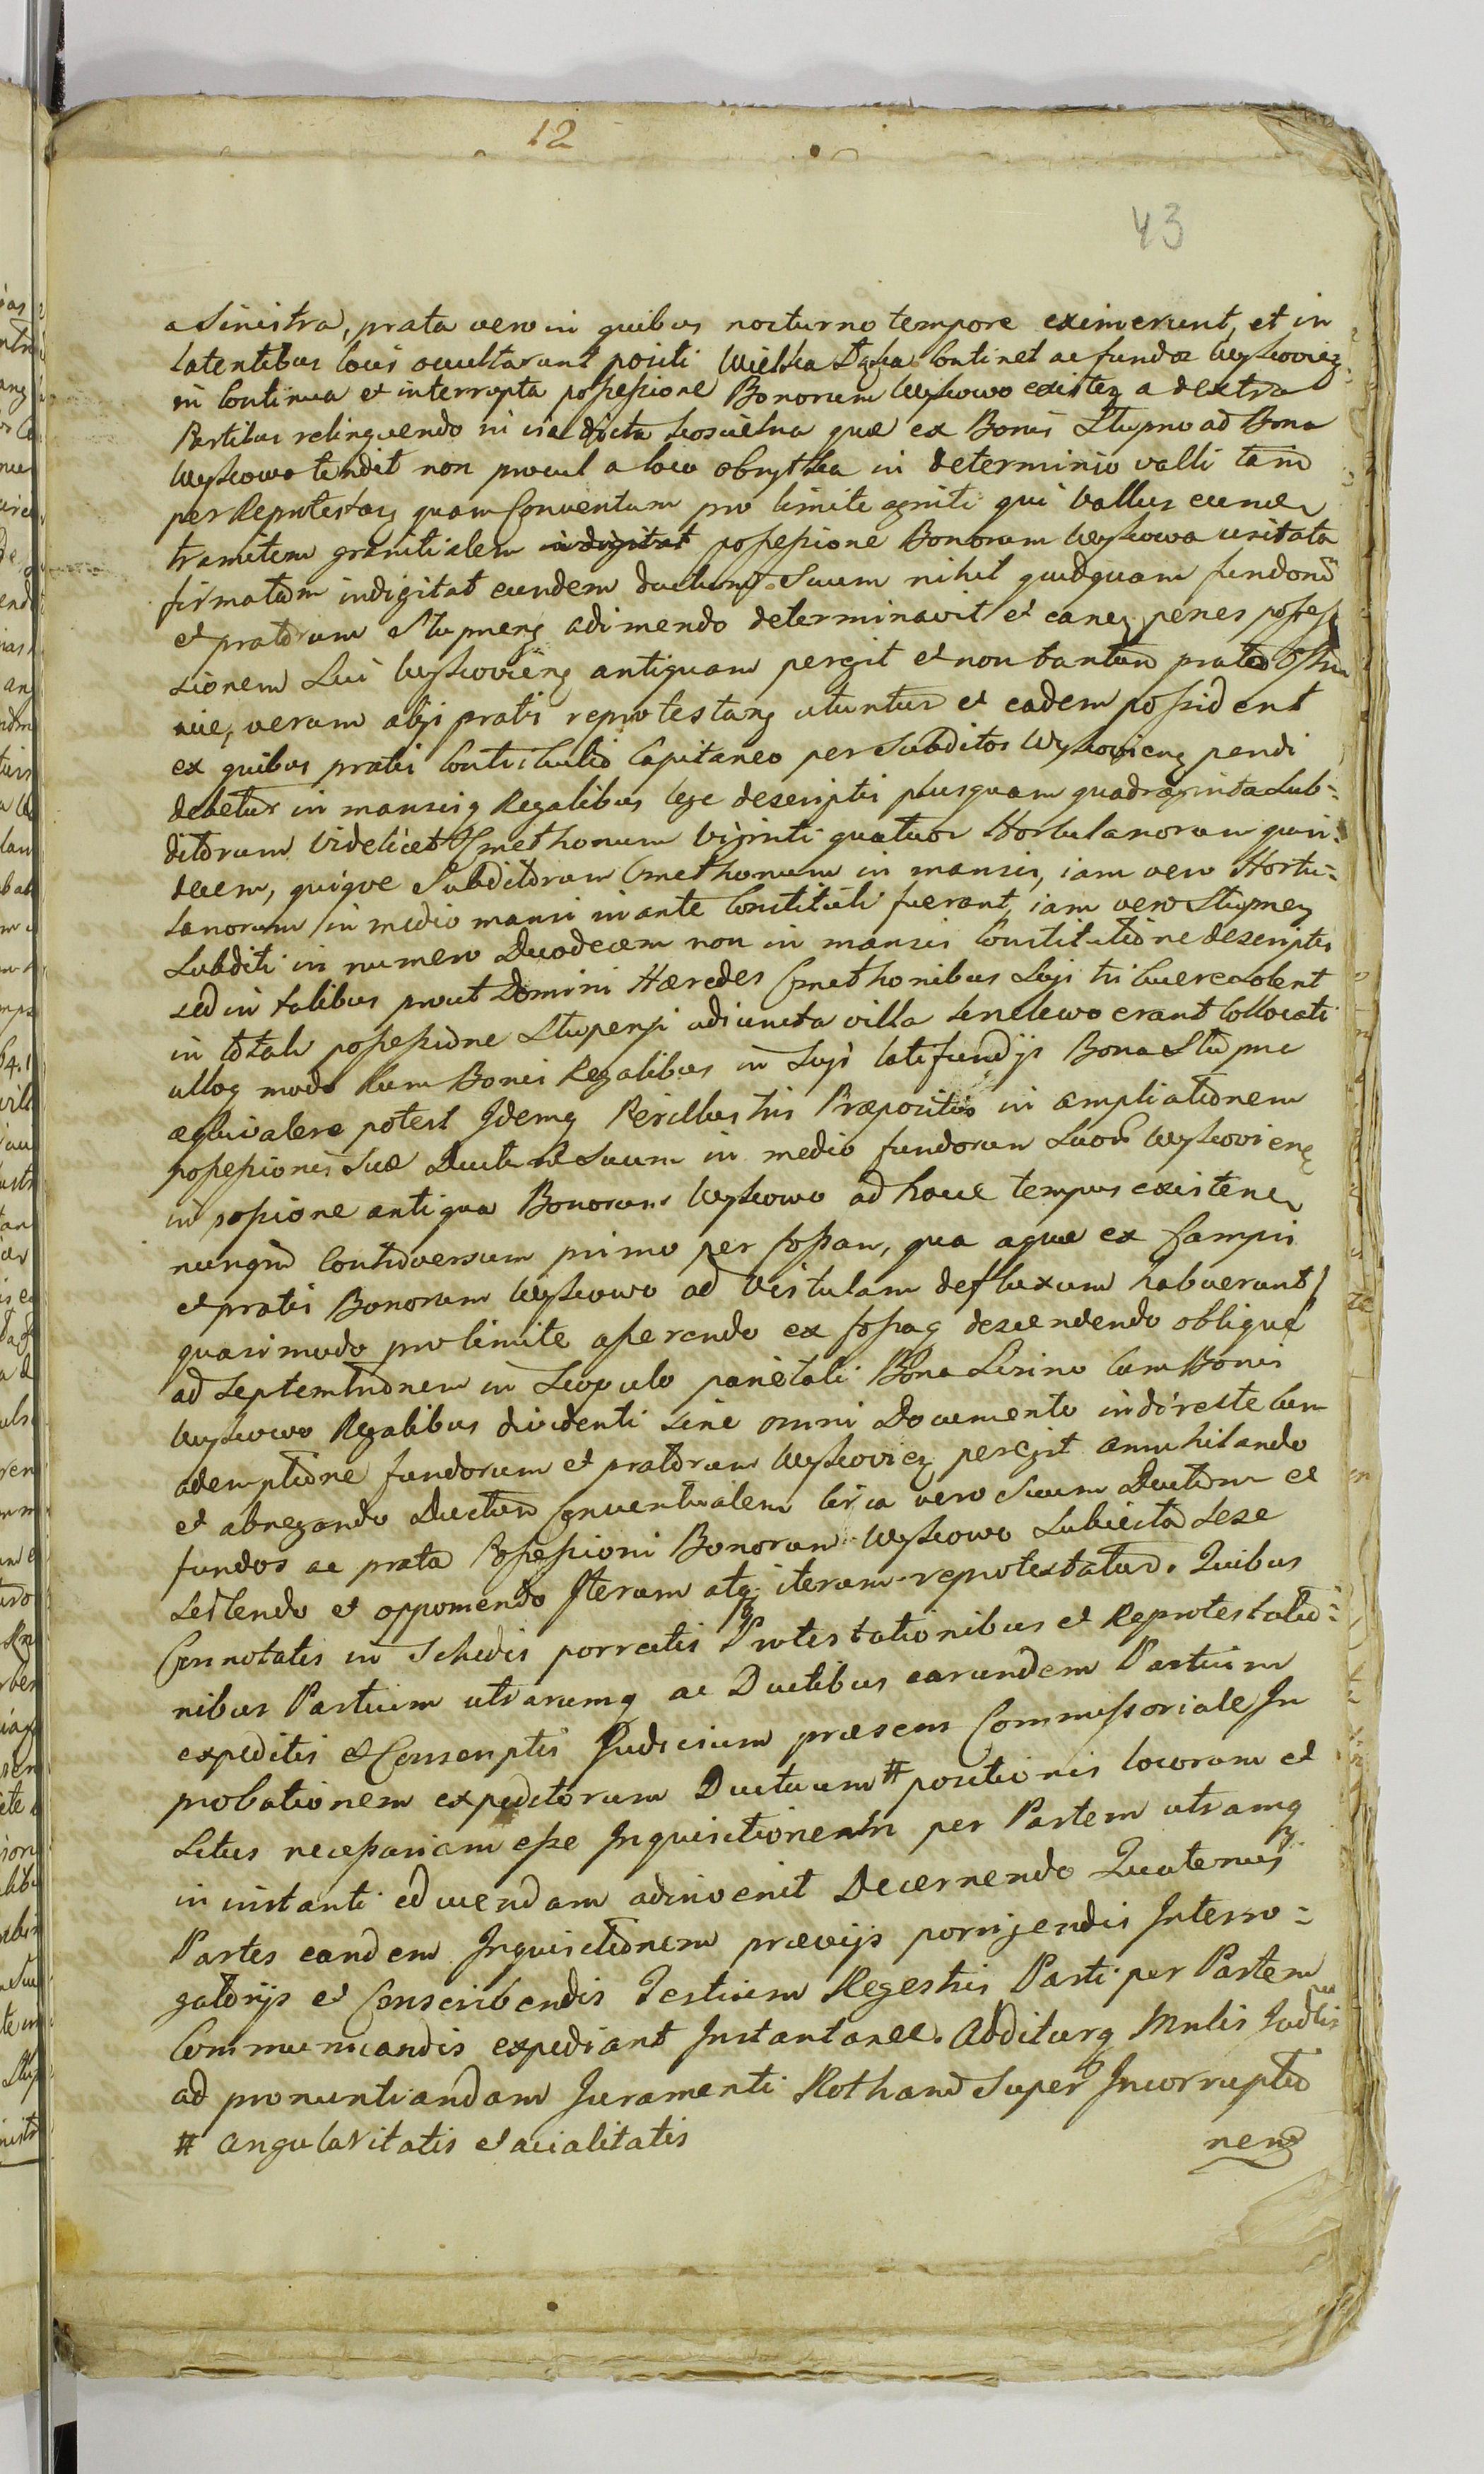 12
43
a Sinistra, prata vero in quibus nocturno tempore eximerunt, et in
latentibus locis occultarunt positi Wielka Continet ac fundos Wyszovien
in Continua et interrupta possessione Bonorum Wyszowo existen a dextra
Partibus relinquendo in via dicta koscielna quæ ex Bonis Stupno ad Bona
Wyszowo tendit non procul a loco obrytka in determinio valli tam
per Reprotestan quam Conventum pro limite agniti qui Vallus eune
tramitem granitialem indigitat possessione Bonorum Wyszowo usitata
firmatam indigitat eundem ductum Suum nihil quidquam fundorum
et pratorum Stupnens adimendo determinavit et eanq penes posses
sionem Sui Wyszoviens antiquam pergit et non tantum prato
verum alijs pratis reprotestans utuntur et eadem possident
ex quibus pratis Contributio Capitaneo per Subditos Wyszoviens pendi
debetur in mansis Regalibus lege descriptis plusquam quadraginta Sub=
ditorum Videlicet Cmethonum Viginti quatuor Hortulanorum quin=
decem, quique Subditorum Cmethonum in mansis, iam vero Hortu=
lanorum in medio mansi inante Constituti fuerant, iam vero Stupnen
Subditi in numero Duodecem non in mansis Constitutione descriptis
sed in talibus prout Domini Hæredes Cmethonibus Suji tribuere solent
in totali possessione Stupensi adiuncta villa erant Collocati
ulloq modo Cum Bonis Regalibus in Suji latifundijs Bona Stupne
æquivalere potest Idemq Perillustris Præpositus in ampliationem
possessionis Suæ Ductum Suum in medio fundorum Suor Wyszoviens
in possione antiqua Bonorum Wyszowo ad hocce tempus existen
nunqm Controversum primo per fossam, qua aquæ ex Campis
et pratis Bonorum Wyszowo ad Vistulam defluxum habuerunt
quasimodo pro limite asserendo ex fossaq descendendo oblique
ad Septemtrionem in Scopulo parietali Bona Liszino Cum Bonis
Wyszowo Regalibus dividenti Sine omni Documento indirecte Cum
ademptione fundorum et pratorum Wyszovien pergit annihilando
et abnegando Ductum Conventualem Circa vero Suum Ductum et
fundos ac prata Possessioni Bonorum Wyszowo Subiecta Sese
Sistendo et opponendo Iterum atq iterum reprotestatur. Quibus
Connotatis in Schedis porrectis Protestationibus et Reprotestatio=
nibus Partium utrarumq ac Ductibus earundem Partium
expeditis et Conscriptis Judicium præsens Commissoriale In
probationem expeditorum Ductuum # positionis locorum et
Situs necessariam esse Inquisitionem per Partem utramq
in instanti educendam adinvenit Decernendo Quatenus
Partes eandem Inquisitionem prævijs porrigendis Interro=
gatorijs et Conscribendis Testium Regestris Parti per Partem
Communicandis expediant Instantanee. Additurq Mnlis Judlis
ad pronuntiandam Juramenti Rotham Super Incorruptio
# angularitatis et acialitatis
nem